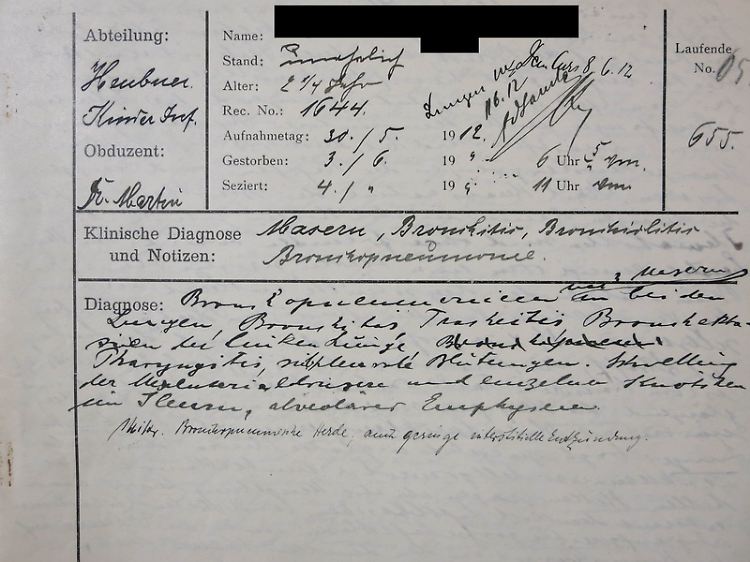 Abteilung:
Heubner.
Kinder Inf.
Obduzent:
Dr. Martin
Name:
Stand: unehelich
Alter: 2 1/4 Jahr
Rec. No.: 1644.
Aufnahmetag: 30./5. 1912.
Gestorben: 3./6. 19 " 6 Uhr Vm.
Seziert: 4./ " 19 " 11 Uhr Vm
Lungen 8.6.12
Laufende
No.
655.
Klinische Diagnose Masern, Bronchitis, Bronchiolitis
und Notizen: Bronchopneumonie.
nach Masern
Diagnose: Bronchopneumonieen an beiden
Lungen, Bronchitis, Tracheitis Bronchekta-
sien der linken Lunge
Pharyngitis, subpleurale Blutungen. Schwellung
der Mesenterialdrüsen und einzelner Knötchen
im Ileum, alveoläres Emphysem.
Mikr. Bronchopneumonische Herde, auch geringe interstitielle Entzündung.